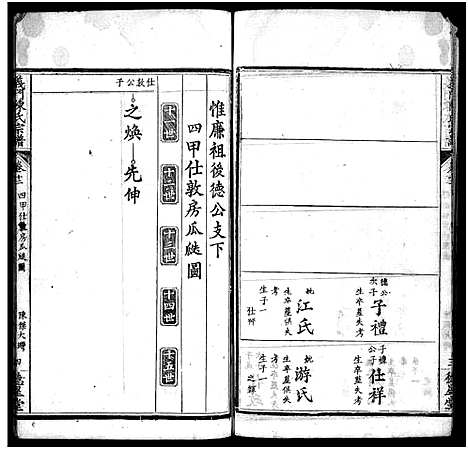 德公次子
子禮
生卒塟失考
妣
江氏
生卒塟俱失考
生子一
仕祥
子禮公子
仕祥
生卒塟失考
妣
游氏
生卒塟俱失考
生子一
惟廉祖後德公支下
四甲仕敦房瓜瓞圖
十一世
十二世
十三世
十四世
十五世
仕敦公子
之煥—先伸
義門陳氏宗譜
卷廿
四甲仕敦房瓜瓞圖
四